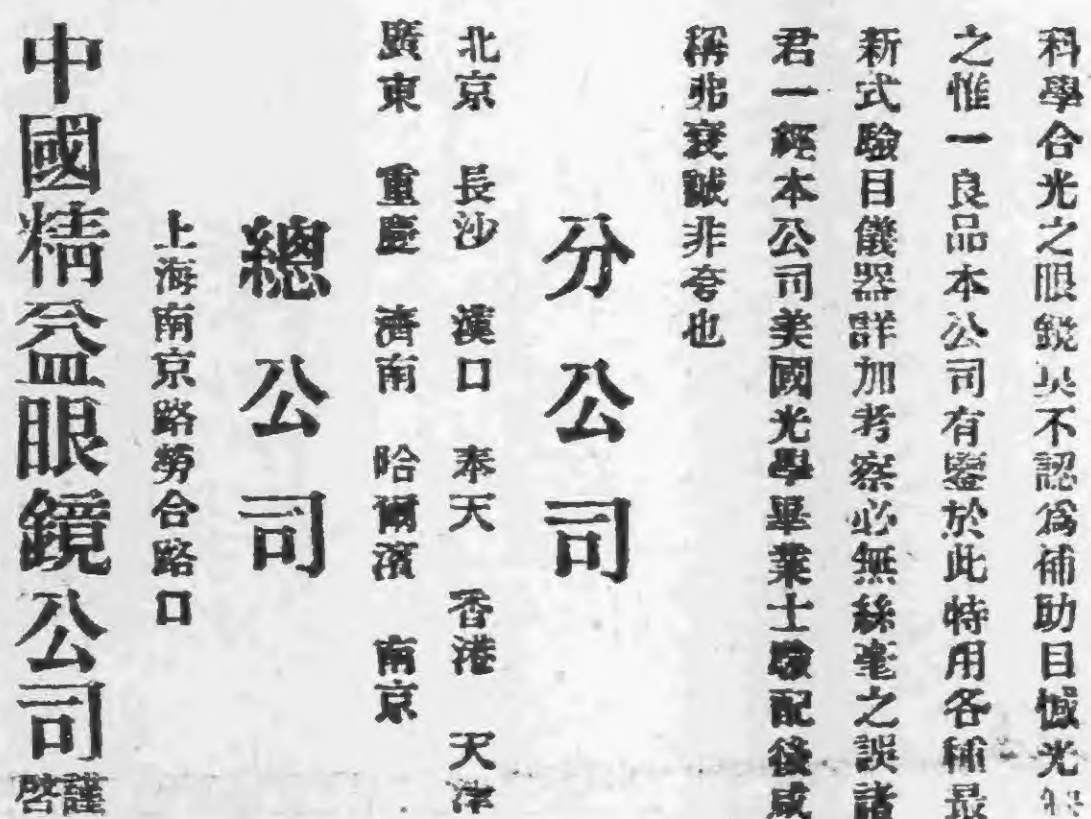 科學合光之眼鏡莫不認爲補助目慽光
之惟一良品本公司有鑒於此特用各種最
新式驗目儀器詳加考察必無絲毫之誤諸
君一經本公司美國光學畢業士驗配後咸
稱弗衰誠非夸也
分公司
北京 長沙 漢口 奉天 香港 天津
廣東 重慶 濟南 哈爾濱 南京
總公司
上海南京路勞合路口
中國精益眼鏡公司謹啓